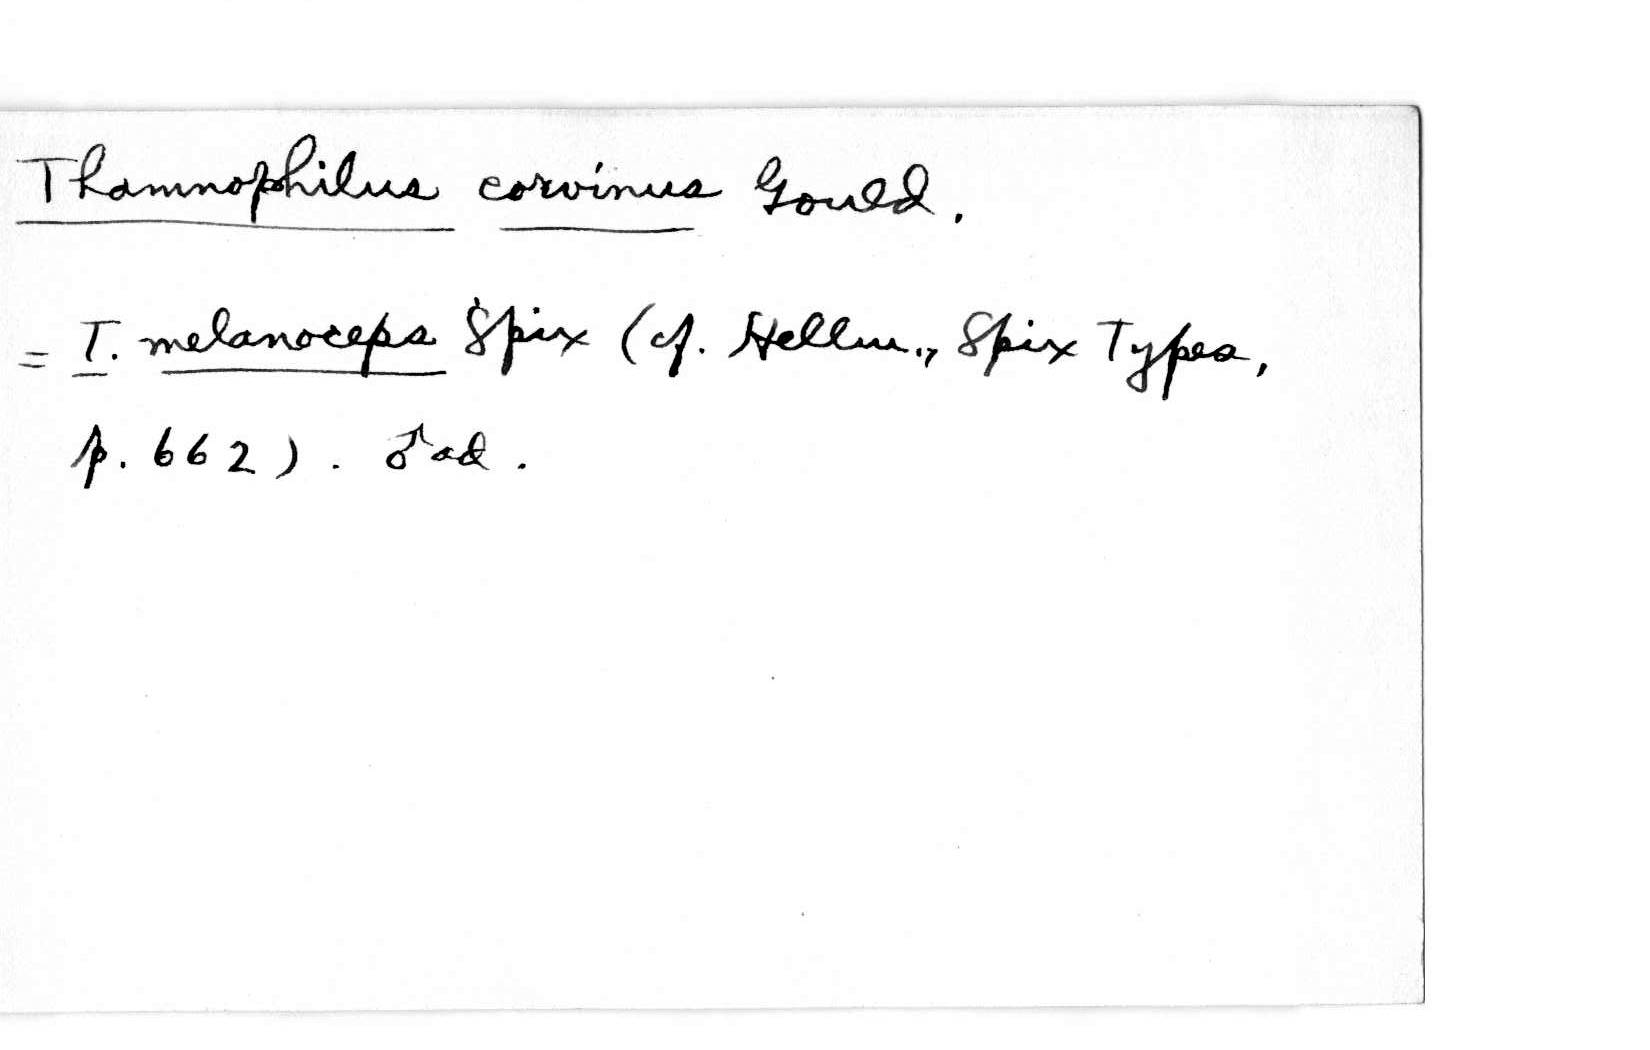 Thamnophilus corvinus Gould.
= T. melanoceps Spix (cf. Hellm., Spix Types,
p. 662). ♂ ad.